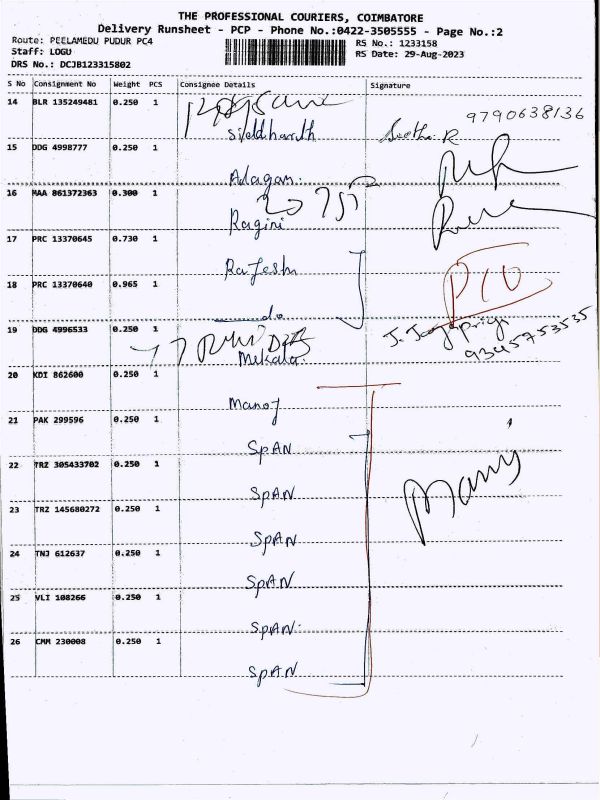 THE PROFESSIONAL COURIERS, COIMBATORE
Delivery Runsheet - PCP - Phone No.:0422-3505555 - Page No.:2
Route: PEELAMEDU PUDUR PC4
RS No.: 1233158
Staff: LOGU
RS Date: 29-Aug-2023
DRS No.: DCJB123315802
S No Consignment No Weight PCS Consignee Details Signature
14 BLR 135249481 0.250 1
9790638136
Siddharth
Seetha. R
15 DDG 4998777 0.250 1
Adagan.
16 MAA 861372363 0.300 1
Ragini
17 PRC 13370645 0.730 1
Rajesh
18 PRC 13370640 0.965 1
do
19 DDG 4996533 0.250 1
9345753535
Mekala.
20 KDI 862600 0.250 1
Manoj
21 PAK 299596 0.250 1
SPAN
22 TRZ 305433702 0.250 1
SPAN
23 TRZ 145680272 0.250 1
SPAN
24 TNJ 612637 0.250 1
SPAN
25 VLI 108266 0.250 1
SPAN
26 CMM 230008 0.250 1
SPAN